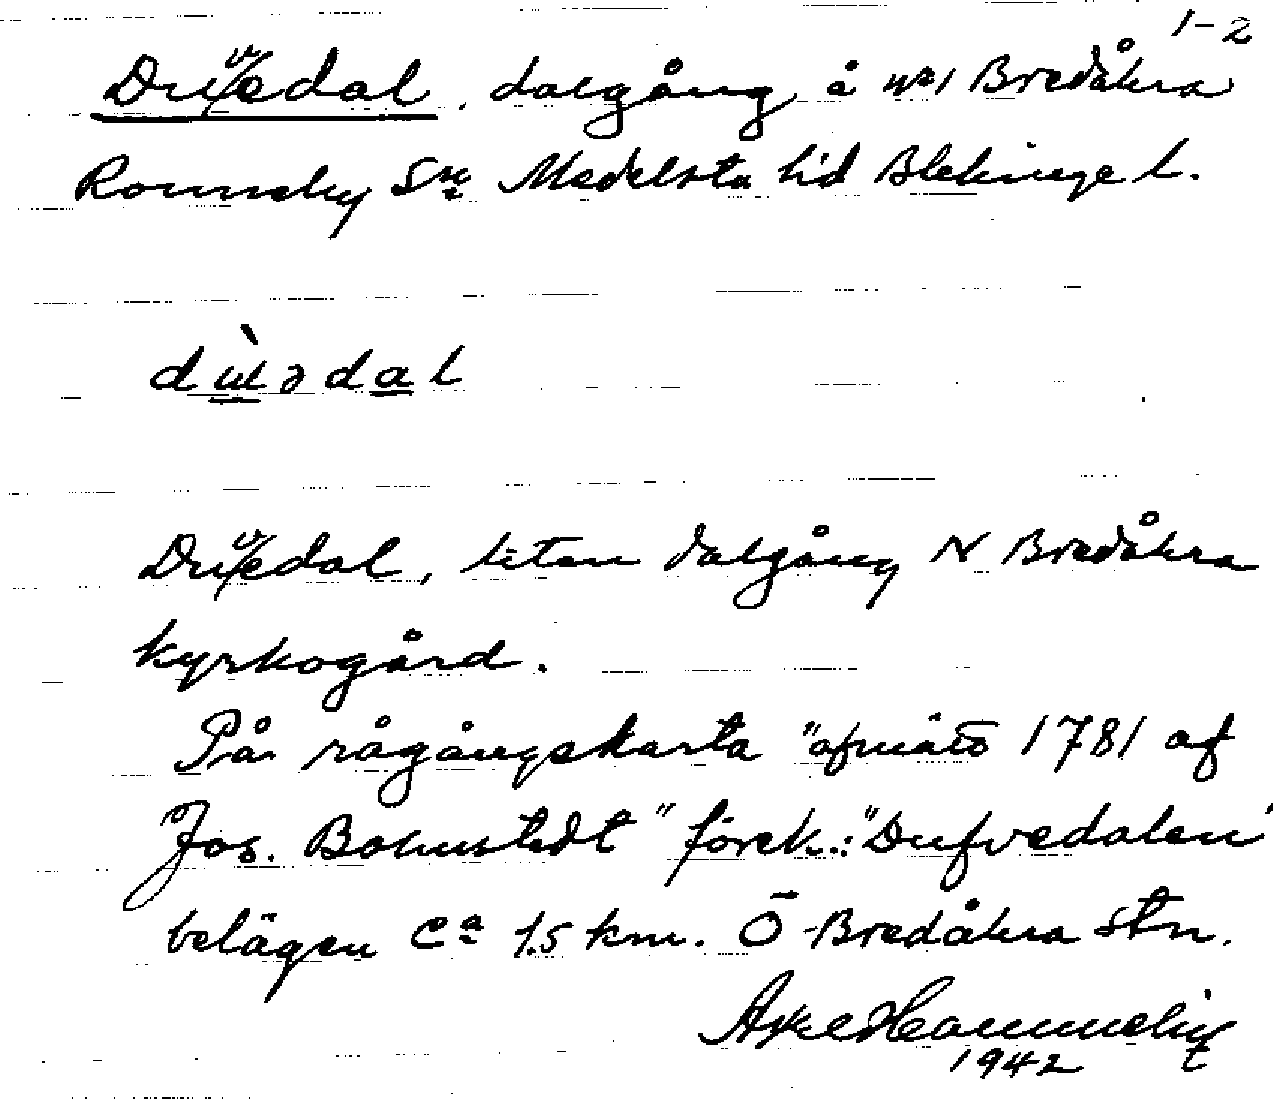 1-2
Duvedal, dalgång å nº1 Bredåkra
Ronneby Sn Medelsta hd Blekinge l.
dùədal
Duvedal, liten dalgång N Bredåkra
kyrkogård.
På rågångskarta "afmätt 1781 af
Jos. Bohmstedt" förek.: "Dufvedalen"
belägen ca 1.5 km. Ö Bredåkra stn.
Axel
1942